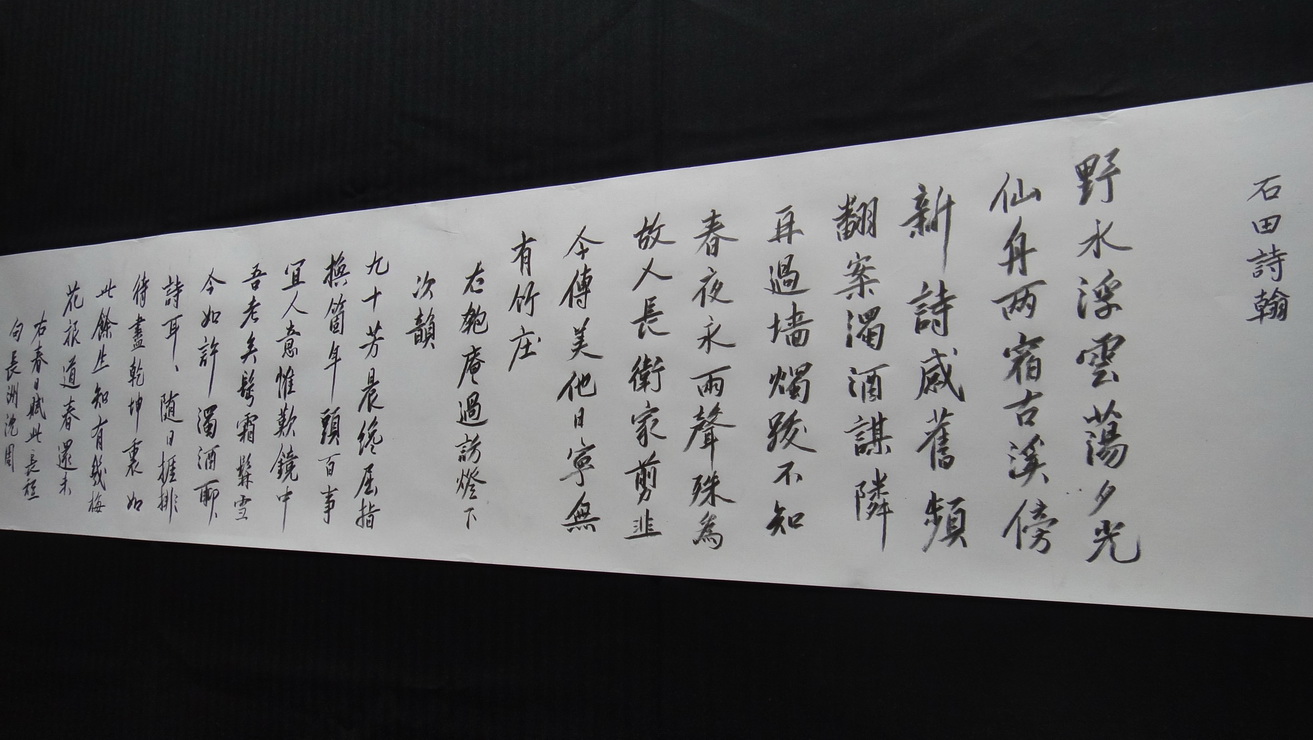 石田詩翰
野水浮雲蕩夕光
仙舟两宿古溪傍
新詩感舊頻
翻案濁酒謀隣
再過墙燭跋不知
春夜永雨聲殊為
故人長衛家剪韭
今傳美他日寧無
有竹庄
右匏庵過訪燈下
次韻
九十芳晨纔屈指
換箇年頭百事
宜人意惟歎鏡中
吾老矣髩霜髹雪
今如許濁酒聊、
詩耳、随日捱排
待盡乾坤裏如
此餘生知有幾梅
花報道春還未
右春日賦此長短
句長洲沈周